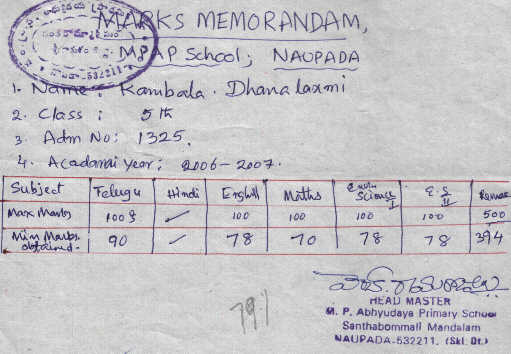 MARKS MEMORANDAM,
MPAP School, NAUPADA
532211
1. Name: Kambala. Dhana laxmi
2. Class: 5th
3. Adm No: 1325.
4. Acadamai year: 2006-2007.
Subject Telugu Hindi English Maths Science I E.S II
Max Marks 100 100 100 100 100 500
Min Marks obtained. 90 78 70 78 78 394
79%
HEAD MASTER
M. P. Abhyudaya Primary School
Santhabommali Mandalam
NAUPADA-532211. (Skl. Dt.)